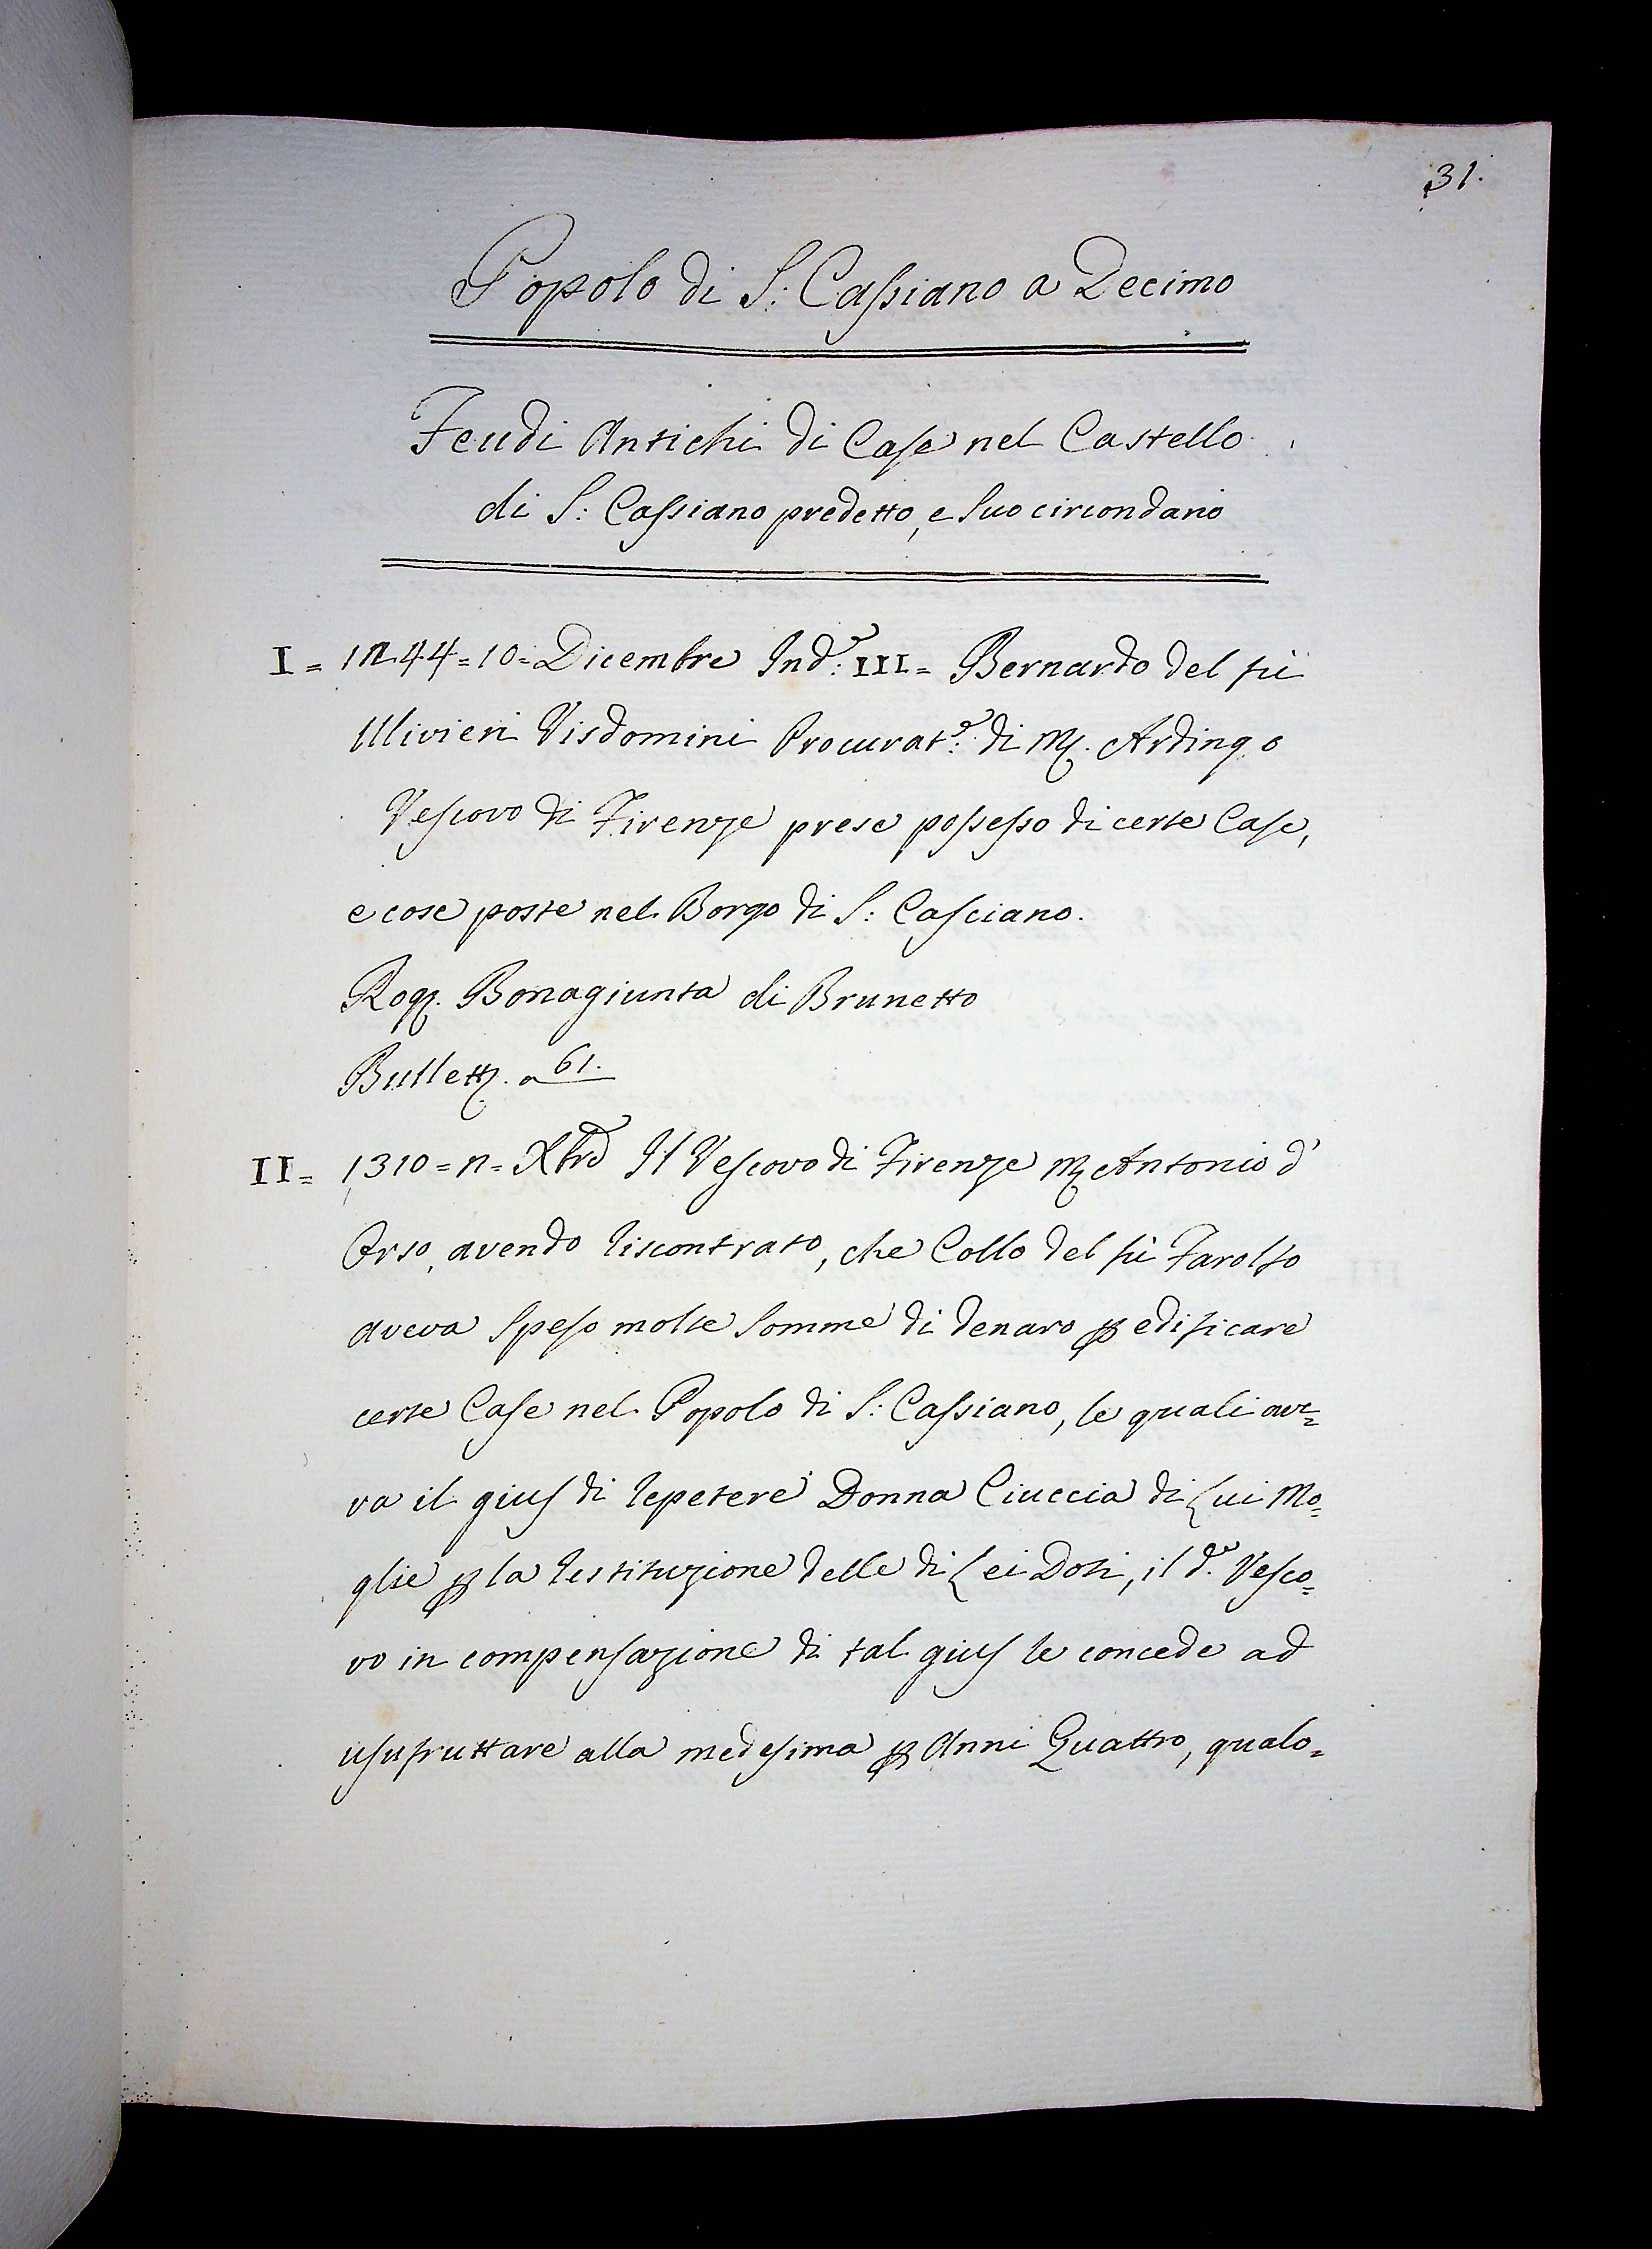 31.
Popolo di S: Cassiano a Decimo
Feudi Antichi di Case nel Castello
di S: Cassiano predetto, e suo circondario
I = 1244 = 10 = Dicembre Ind.e III = Bernardo del fù
Ulivieri Visdomini Procurat.e di M. Ardingo
Vescovo di Firenze prese possesso di certe Case,
e cose poste nel Borgo di S: Casciano.
Rog. Bonagiunta di Brunetto
Bullett. a 61.
II = 1310 = 12 = Xbre Il Vescovo di Firenze M Antonio d'
Orso, avendo riscontrato, che Collo del fù Farolfo
aveva speso molte somme di denaro p edificare
certe Case nel Popolo di S: Cassiano, le quali ave=
va il gius di repetere Donna Ciuccia di Lui Mo=
glie p la restituzione delle di Lei Doti, il d.o Vesco=
vo in compensazione di tal gius le concede ad
usufruttare alla medesima p Anni Quattro, qualo=